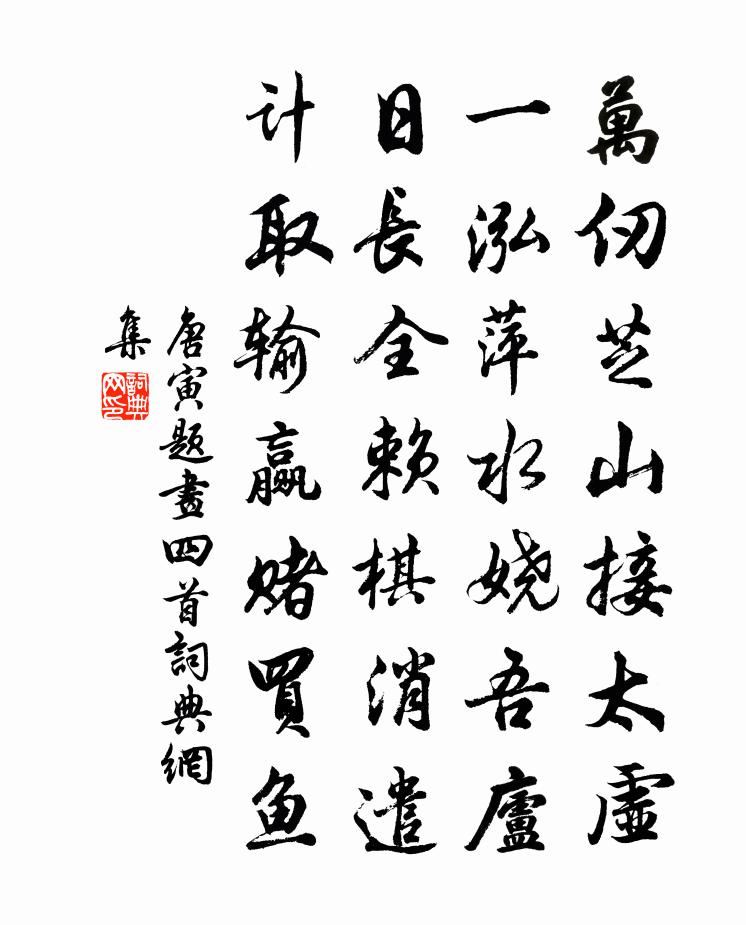 萬仞芝山接太虛
一泓萍水娆吾廬
日長全賴棋消遣
计取输赢赌買鱼
唐寅题畫四首詞典網
集
詞典
网印